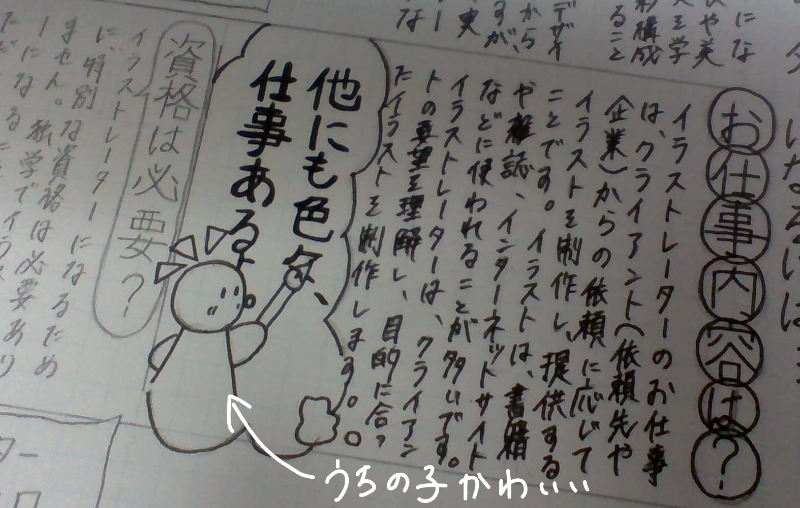 になるには…
になり
や美
を学
構成
ること
デザイ
から
すが、
実
な
お仕事内容は?
イラストレーターのお仕事
は、クライアント(依頼先や
企業)からの依頼に応じて
イラストを制作し、提供する
ことです。イラストは、書籍
や雑誌、インターネットサイト
などに使われることが多いです。
イラストレーターは、クライアン
トの要望を理解し、目的に合っ
たイラストを制作します。
他にも色々、
仕事あるよ
資格は必要?
イラストレーターになるため
に、特別な資格は必要あり
ません。独学でイラス
ーになること
ター
うちの子かわいい